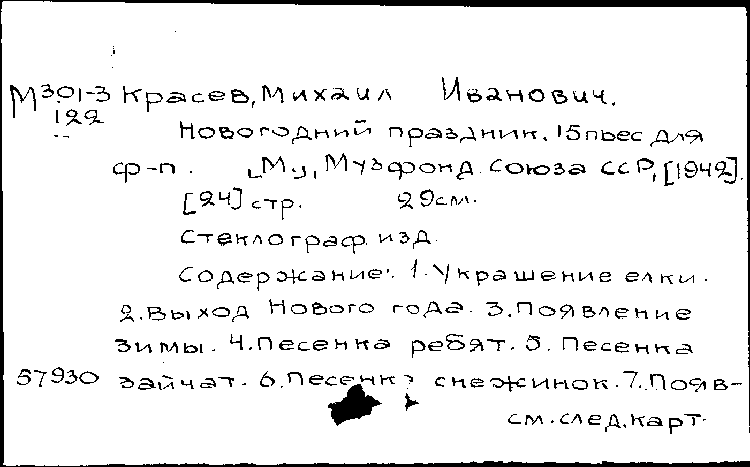 М301-3 Красев, Михаил Иванович.
122
Новогодний праздник. 15 пьес для
ф-п. [М], Музфонд Союза ССР, [1942].
[24] стр. 29см.
Стеклограф. изд.
Содержание: 1. Украшение елки.
2. Выход Нового года. 3. Появление
зимы. 4. Песенка ребят. 5. Песенка
57930 зайчат. 6. Песенка снежинок. 7. Появ-
см. след. карт.